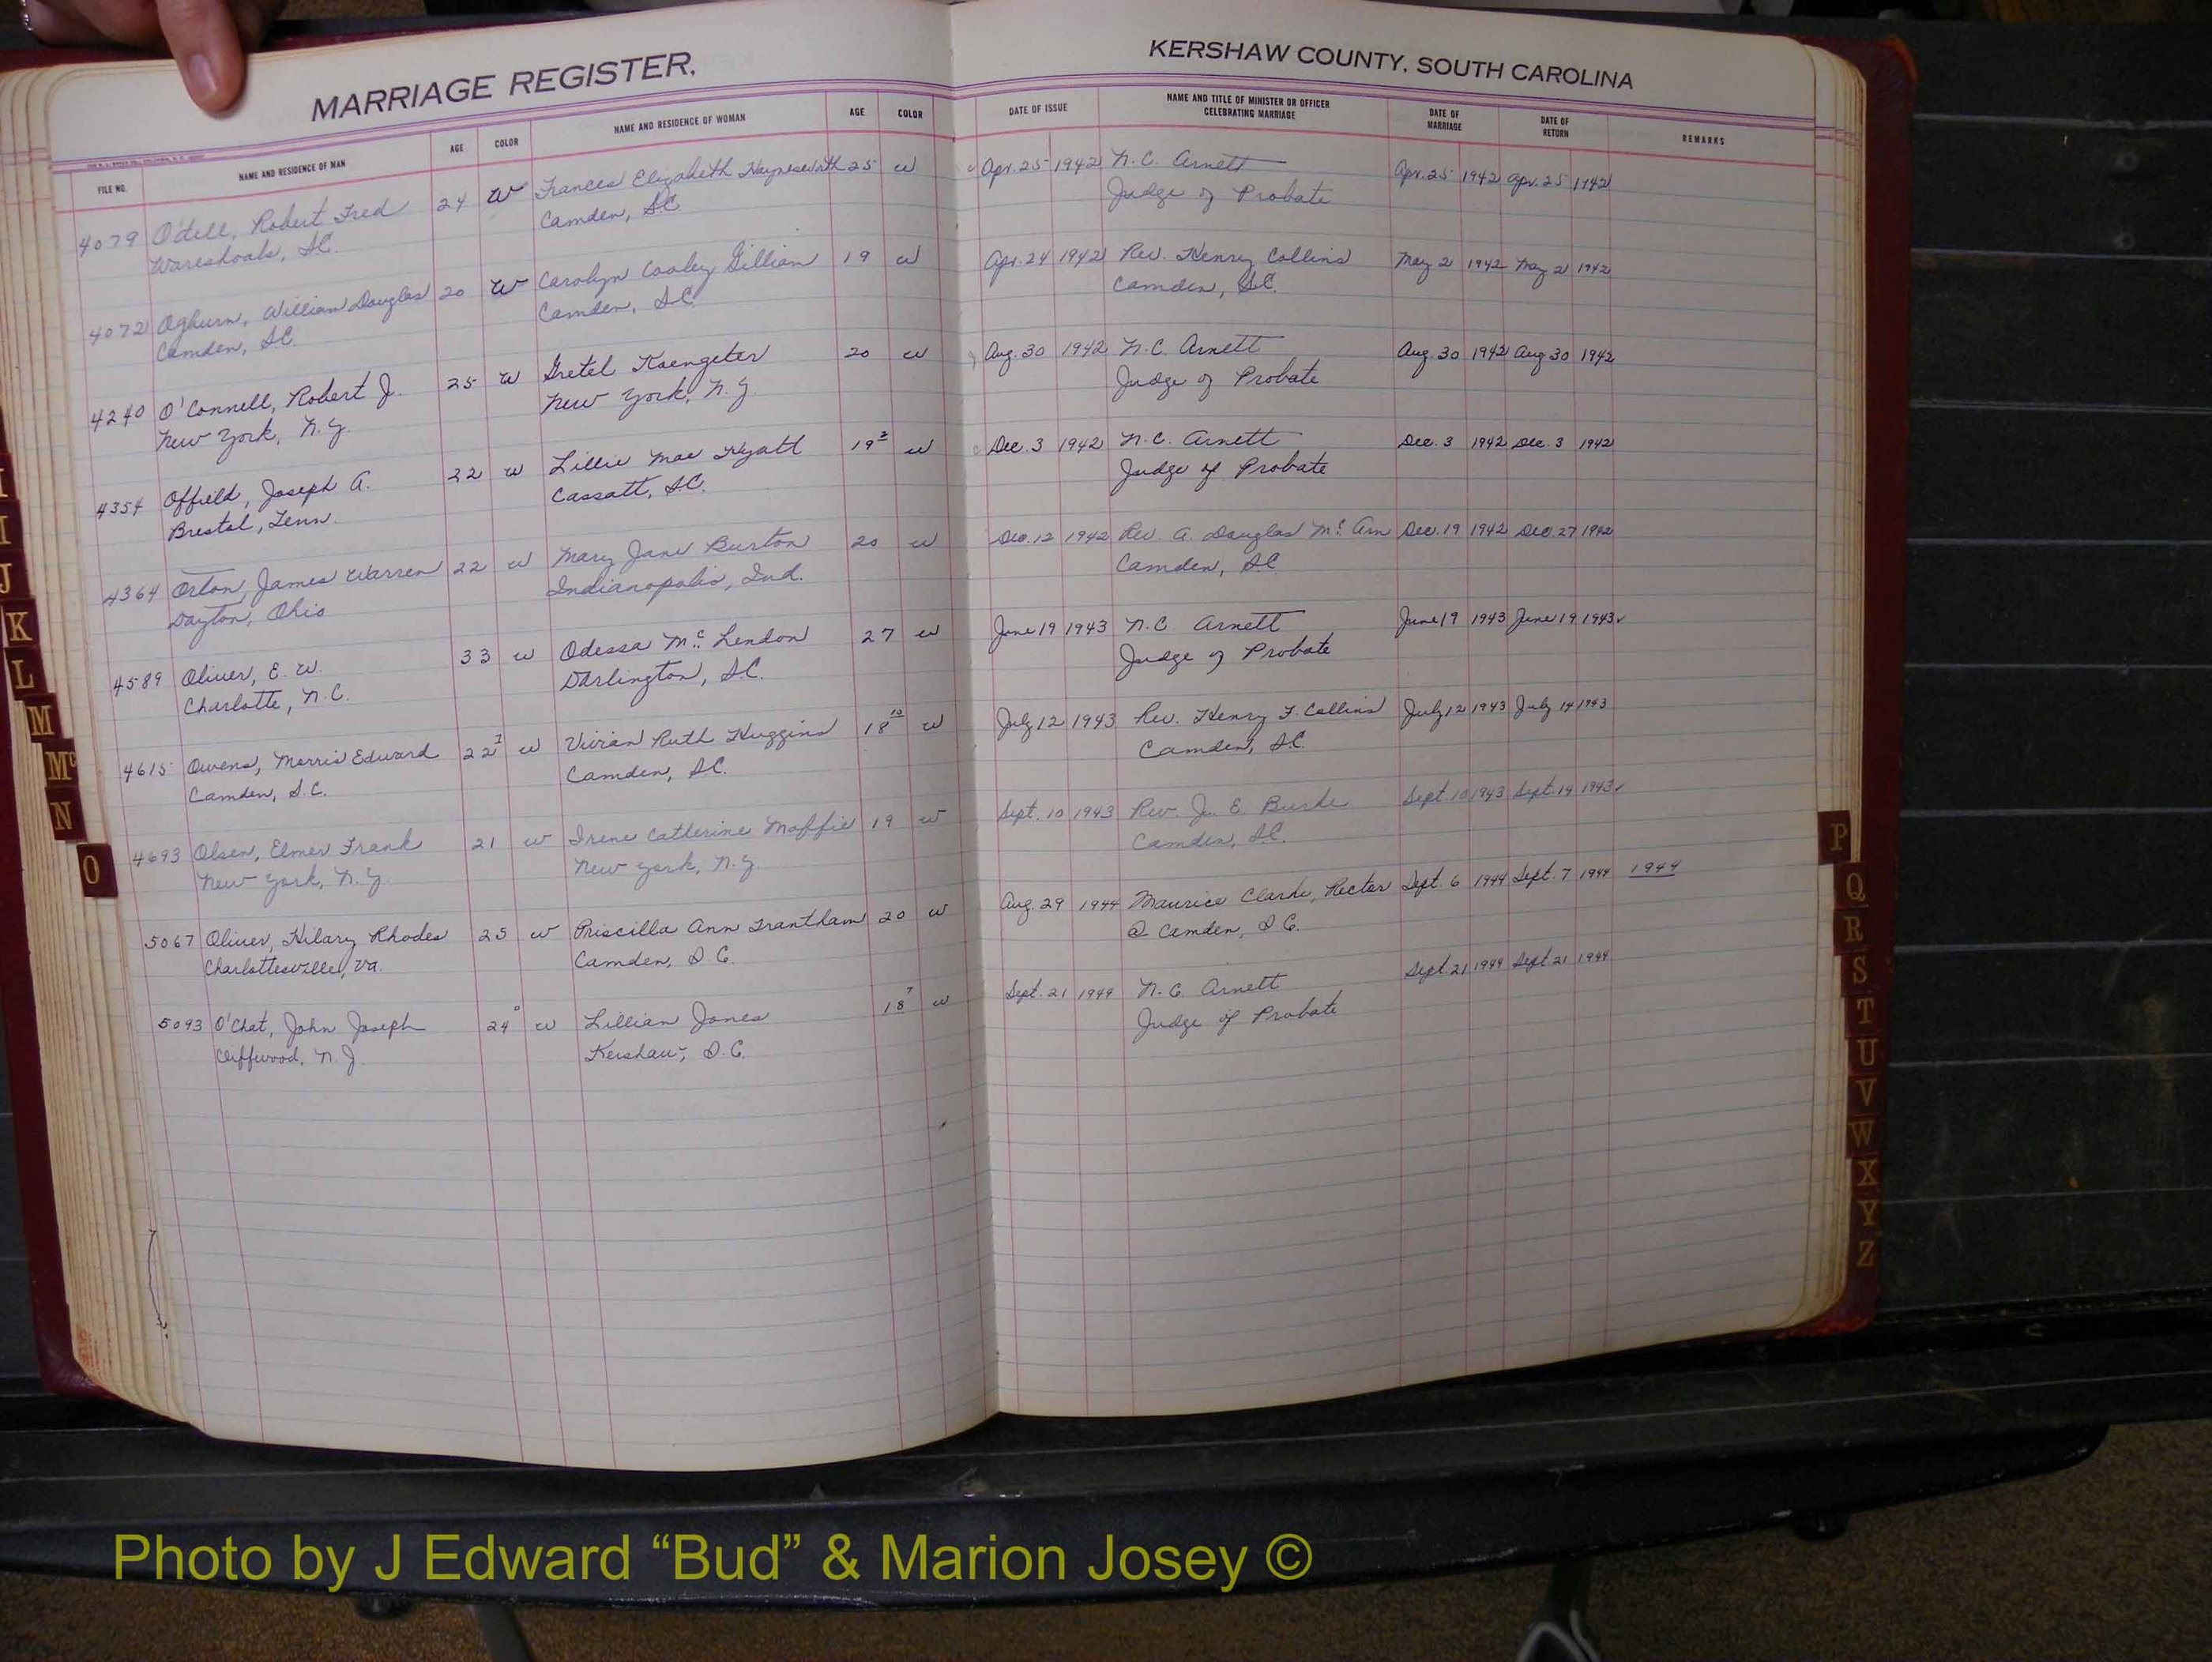 MARRIAGE REGISTER,
KERSHAW COUNTY, SOUTH CAROLINA
FILE NO. NAME AND RESIDENCE OF MAN AGE COLOR NAME AND RESIDENCE OF WOMAN AGE COLOR DATE OF ISSUE NAME AND TITLE OF MINISTER OR OFFICER CELEBRATING MARRIAGE DATE OF MARRIAGE DATE OF RETURN REMARKS
4079 O'dell, Robert Fred 24 W Frances Elizabeth Haynesworth 25 W Apr. 25 1942 N. C. Arnett Apr. 25 1942 Apr. 25 1942
Wareshoals, S.C. Camden, S.C. Judge of Probate
4072 Ogburn, William Douglas 20 W Carolyn Cooley Gillian 19 W Apr. 24 1942 Rev. Henry Collins May 2 1942 May 2 1942
Camden, S.C. Camden, S.C. Camden, S.C.
4240 O'Connell, Robert J. 25 W Gretel 20 W Aug. 30 1942 N. C. Arnett Aug. 30 1942 Aug 30 1942
New York, N.Y. New York, N.Y. Judge of Probate
4354 Offield, Joseph A. 22 W Lillie Mae Hyatt 19 W Dec. 3 1942 N. C. Arnett Dec. 3 1942 Dec. 3 1942
Brestol, Tenn. Cassatt, S.C. Judge of Probate
4364 Orton, James Warren 22 W Mary Jane Burton 20 W Dec. 12 1942 Rev. A. Douglas Mc Arn Dec. 19 1942 Dec. 27 1942
Dayton, Ohio Indianapolis, Ind. Camden, S.C.
4589 Oliver, E. W. 33 W Odessa Mc Lendon 27 W June 19 1943 N. C. Arnett June 19 1943 June 19 1943
Charlotte, N.C. Darlington, S.C. Judge of Probate
4615 Owens, Morris Edward 22 1 W Vivian Ruth Huggins 18 10 W July 12 1943 Rev. Henry F. Collins July 12 1943 July 14 1943
Camden, S.C. Camden, S.C. Camden, S.C.
4693 Olsen, Elmer Frank 21 W Irene Catherine Maffie 19 W Sept. 10 1943 Rev. J. E. Sept. 10 1943 Sept. 14 1943
New York, N.Y. New York, N.Y. Camden, S.C.
5067 Oliver, Hilary Rhodes 25 W Priscilla Ann Trantham 20 W Aug. 29 1944 Maurice Clarke, Rector Sept. 6 1944 Sept. 7 1944 1944
Charlottesville, Va. Camden, S.C. @ Camden, S.C.
5093 O'Chat, John Joseph 24 0 W Lillian Jones 18 7 W Sept. 21 1944 N. C. Arnett Sept. 21 1944 Sept. 21 1944
Cliffwood, N.J. Kershaw, S.C. Judge of Probate
I
I
J
K
L
M
Mc
N
O
P
Q
R
S
T
U
V
W
X
Y
Z
Photo by J Edward “Bud” & Marion Josey ©